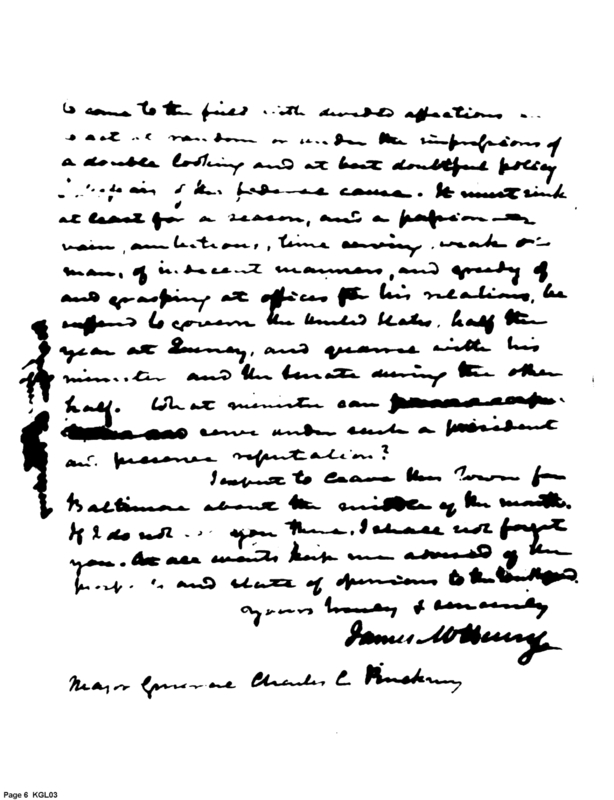 to come to the field with divided affections
act at random or under the impressions of
a double looking and at best doubtful policy
of the federal cause. It must sink
at least for a season, and a passionate
vain, ambitious, time serving, weak
man, of indecent manners, and greedy of
and grasping at offices for his relations, be
suffered to govern the United States, half the
year at Quincy, and quarrel with his
minister and the Senate during the other
half. What minister can
serve under such a president
and preserve reputation?
I expect to leave this Town for
Baltimore about the middle of the month.
If I do not you there, I shall not forget
you. At all events keep me advised of the
and state of opinions to the Southward.
Yours truly & sincerely
James McHenry
Major General Charles C. Pinckney
Page 6 KGL03